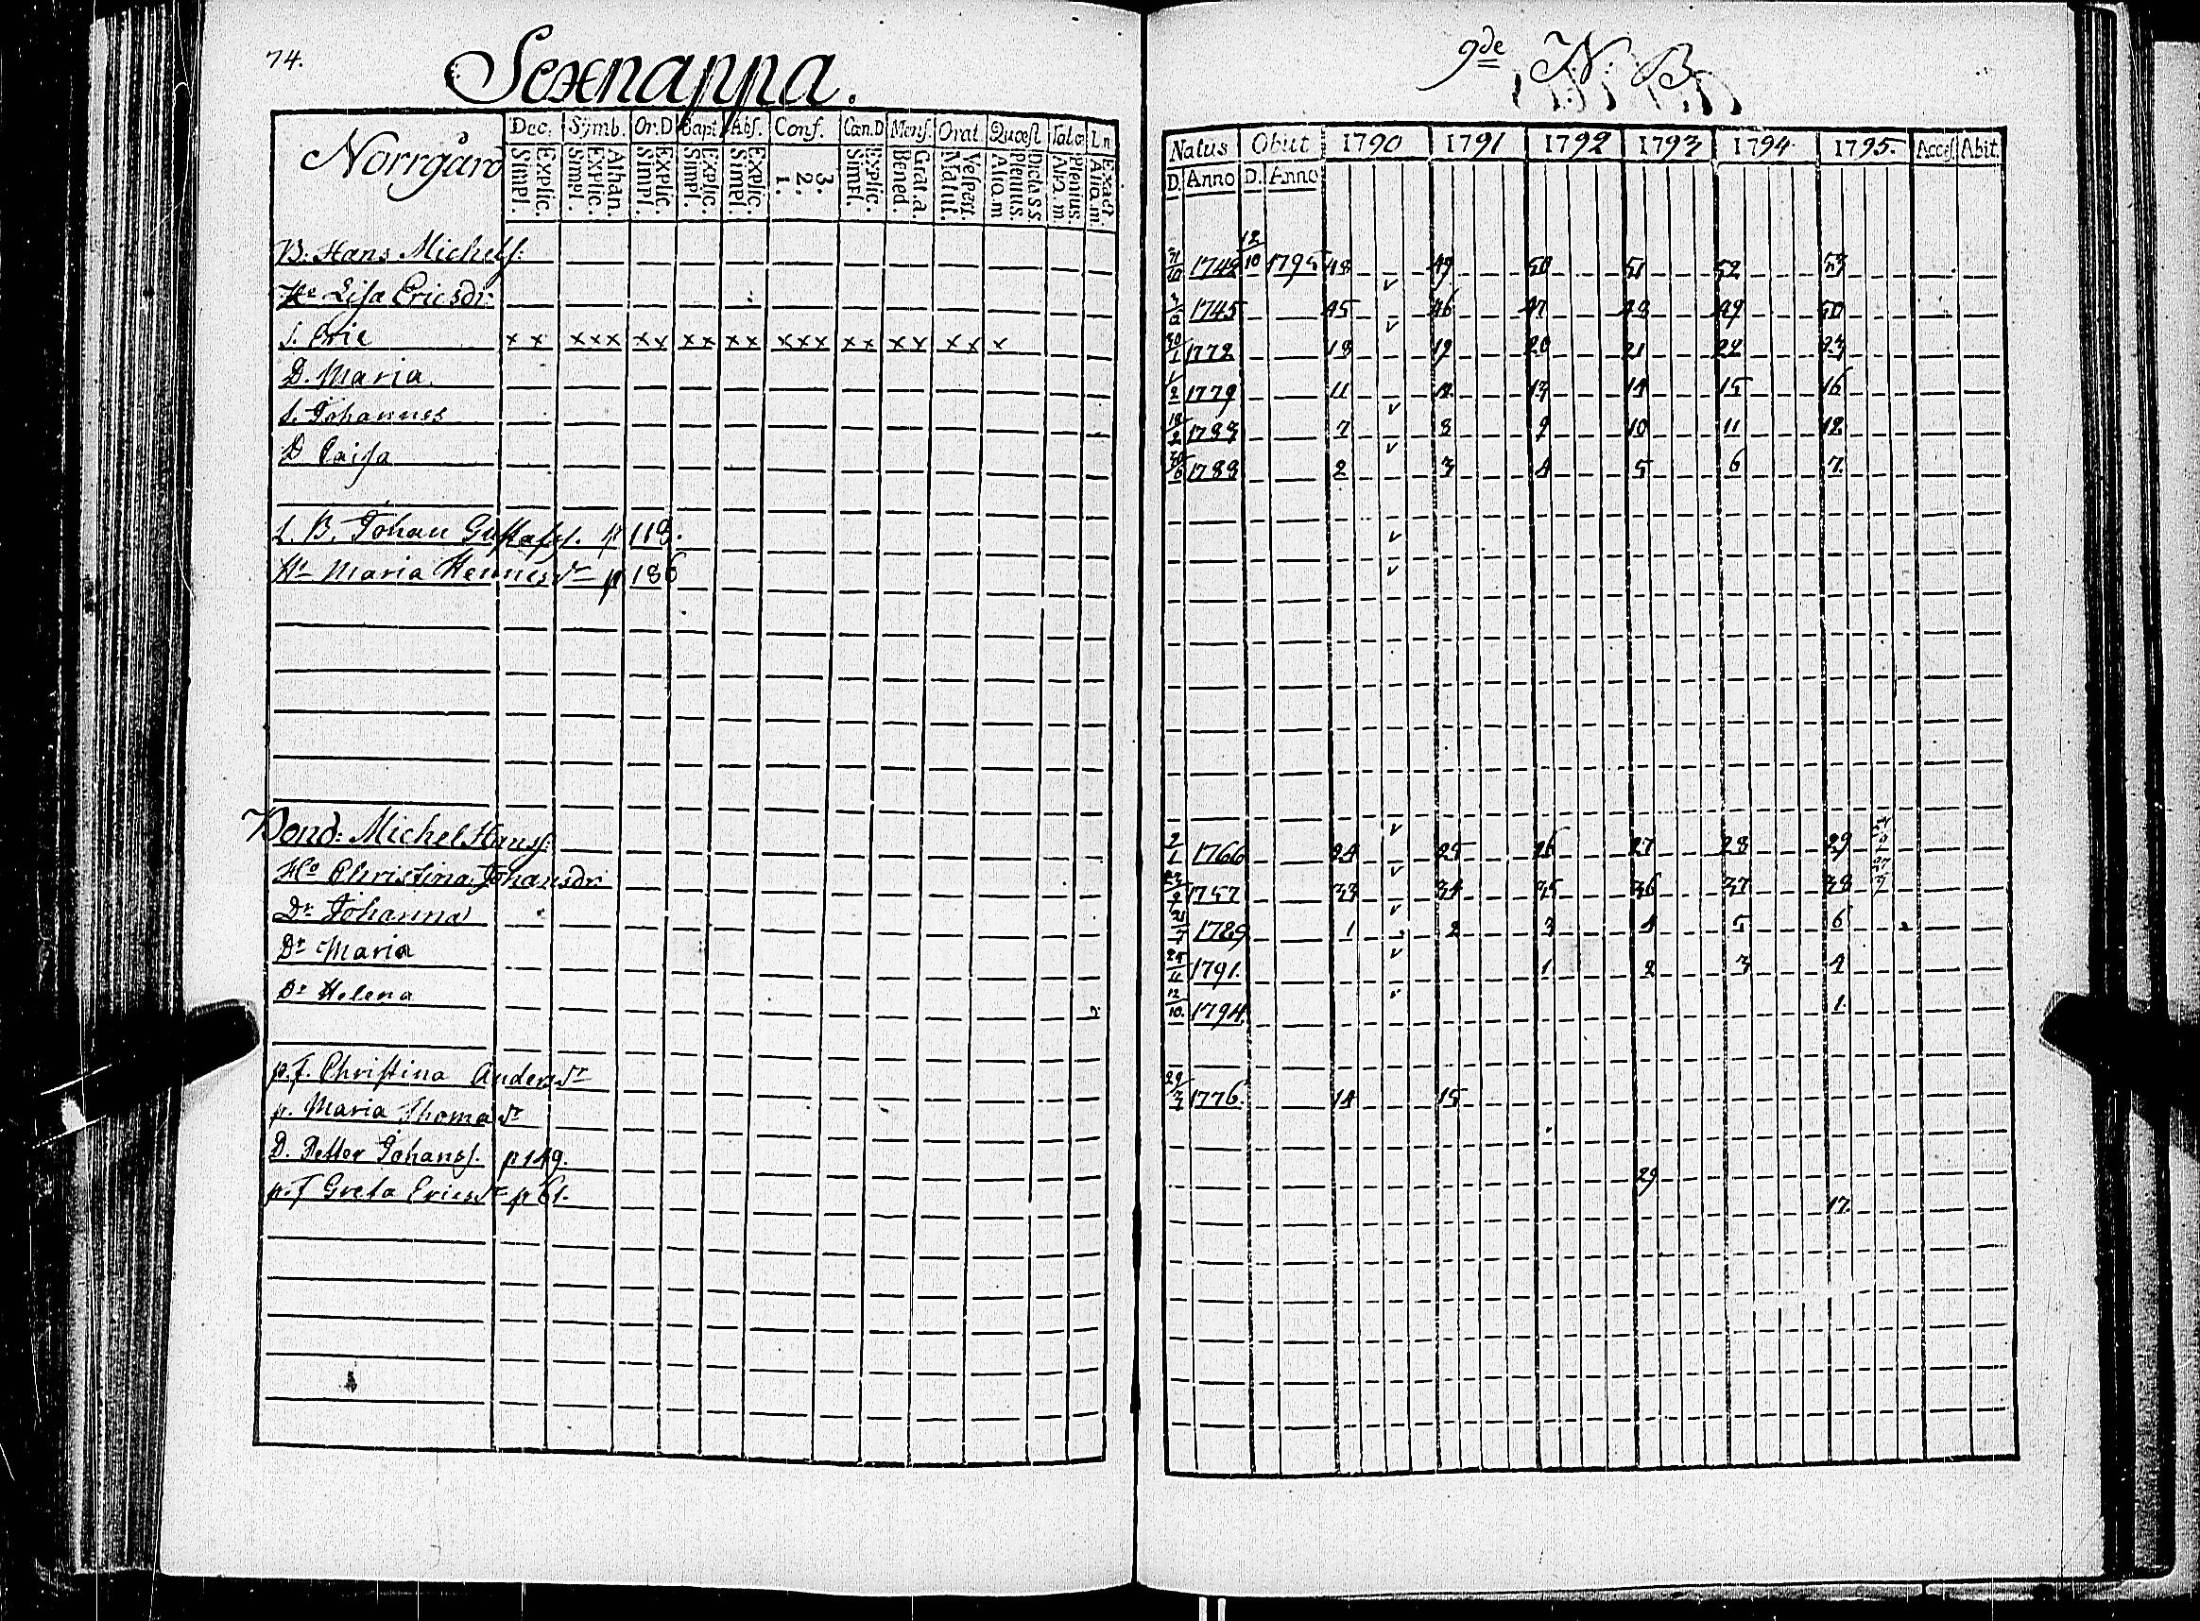 74.
Sexnappa.
9de N. B.
Norrgård
Dec. Symb. Or.D Bapt. Abs. Conf. Cœn.D Mens. Orat. Quæst. Ln.
Simpl. Explic. Simpl. Explic. Athan. Simpl. Explic. Simpl. Explic. Simpl. Explic. 1. 2. 3. Simpl. Explic. Bened. Grat.a. Matut. Vespert. Aliq.m Plenius. Dicta SS Aliq.m. Plenius. Aliq.m. Exact
Natus Obiit 1790 1791 1792 1793 1794 1795. Acces. Abit.
D. Anno D. Anno
B. Hans Michels: 1742 12/10 1795 48 49 50 51 52 53
Ho Lisa Ericsdr: 1745 45 46 47 48 49 50
S. Eric x x x x x x x x x x x x x x x x x x x x x x 30/1 1772 18 19 20 21 22 23
D. Maria 1/2 1779 11 12 13 14 15 16
S. Johannes 1783 7 8 9 10 11 12
D Caisa 1788 2 3 4 5 6 7.
S. B. Johan Gustafs. p 118.
Hu Maria Hennesdr p 186
Bond: Michel Hans: 2/1 1766 24 25 26 27 28 29
Ho Christina Johansdr: 1757 33 34 35 36 37 38
Dr Johanna 21/7 1789 1 2 3 4 5 6
Dr Maria 1791. 1 2 3 4
Dr Helena 12/10. 1794. 1.
p.f. Christina Andersdr 1776. 14 15
p. Maria Thomasdr
D. Petter Johans. p 149. 29
p.f Greta Ericsdr p 61. 17.